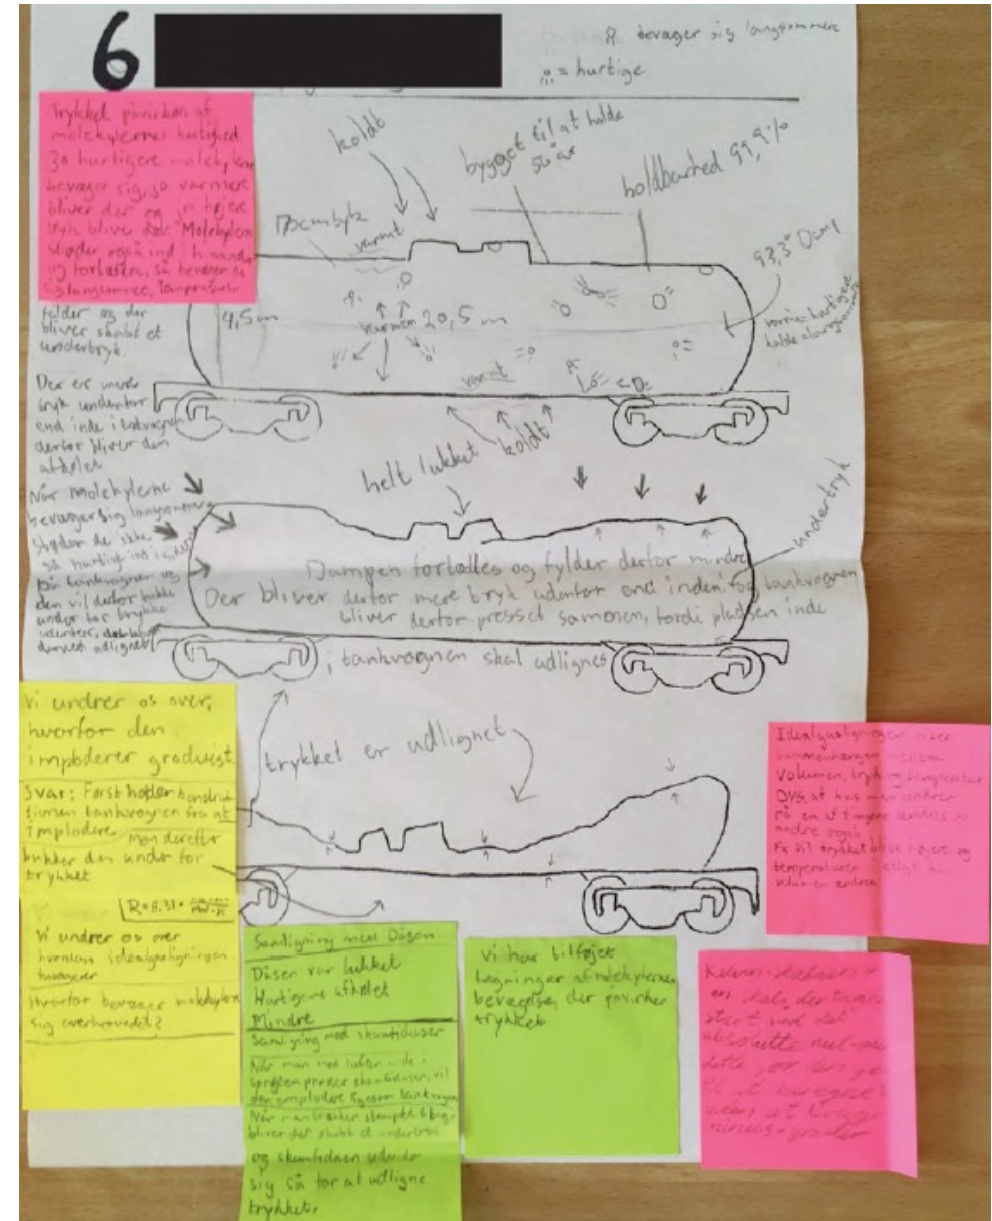 6
bevæger sig langsommere
= hurtige
Trykket påvirkes af
molekylernes hastighed.
Jo hurtigere molekylerne
bevæger sig, jo varmere
bliver der og jo højere
tryk bliver der. Molekylerne
støder også ind i hinanden
og fortættes, så bevæger de
sig langsommere, temperaturen
falder og der
bliver skabt et
undertryk.
Der er mere
tryk udenfor
end inde i
derfor bliver den
afkølet
Når molekylerne
bevæger sig langsommere
støder de ikke
så hurtigt ind i
tankvognen og
den vil derfor bukke
under for trykket
udenfor,
udlignet
koldt
bygget til at holde
50 år
holdbarhed 99,9%
varmt
93,3° Damp
4,5 m
varmen 20,5 m
varme hurtigere
kolde langsommere
varmt
koldt
helt lukket
undertryk
Dampen fortættes og fylder derfor mindre
Der bliver derfor mere tryk udenfor end inden i og tankvognen
bliver derfor presset sammen, fordi pladsen inde
i tankvognen skal udlignes
trykket er udlignet
Vi undrer os over,
hvorfor den
imploderer gradvist.
Svar: Først holder
tankvognen fra at
implodere men derefter
bukker den under for
trykket
R=8.31
Vi undrer os over
hvordan idealgasligningen
fungerer
Hvorfor bevæger molekylerne
sig overhovedet?
Samligning med Dåsen
Dåsen var lukket
Hurtigere afkølet
Mindre
Samligning med skumfiduser
Når man med luften inde i
sprøjten presser skumfidusen, vil
den implodere ligesom tankvognen
Når man trækker stemplet tilbage
bliver der skabt et undertryk
og skumfidusen udvider
sig så for at udligne
trykket.
Vi har tilføjet
tegninger af molekylernes
bevægelse, der påvirker
trykket
Idealgasligningen viser
sammenhængen mellem
volumen, tryk og temperatur
DVS, at hvis man ændrer
på en af tingene ændres de
andre også
Fx vil trykket blive højere og
temperaturen
volumen ændres
Kelvin-skalaen er
en skala, der
start ved det
absolutte nul-punkt
dette gør den
at beregne
uden at
minus-grader